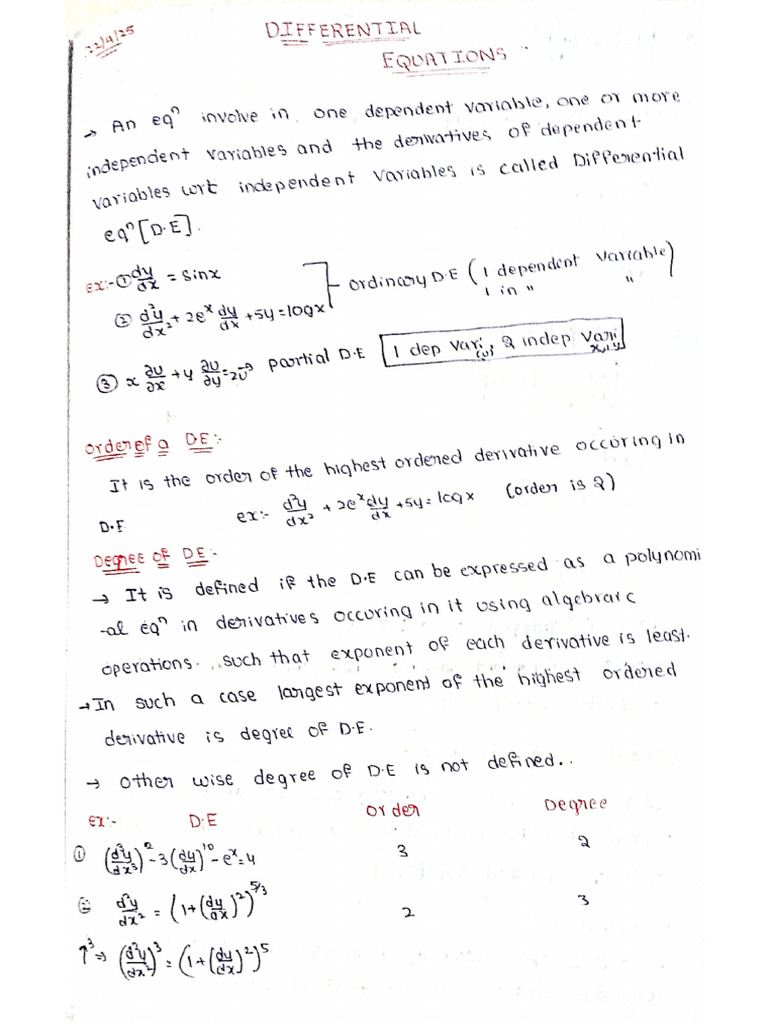 22/4/25
DIFFERENTIAL
EQUATIONS
→ An eqⁿ involve in one dependent variable, one or more
independent variables and the derivatives of dependent
variables wrt independent variables is called Differential
eqⁿ [D.E].
ex:- ① dy/dx = sinx
ordinary D.E ( 1 dependent variable / 1 in " " )
② d²y/dx² + 2eˣ dy/dx + 5y = logx
③ x ∂u/∂x + y ∂u/∂y = 2u → partial D.E [1 dep vari (u), 2 indep vari x, y]
Order of a D.E:-
It is the order of the highest ordered derivative occuring in
D.E ex:- d²y/dx² + 2eˣ dy/dx + 5y = logx (order is 2)
Degree of D.E:-
→ It is defined if the D.E can be expressed as a polynomi
-al eqⁿ in derivatives occuring in it using algebraic
operations. such that exponent of each derivative is least.
→ In such a case largest exponent of the highest ordered
derivative is degree of D.E.
→ Other wise degree of D.E is not defined..
ex:- D.E Order Degree
① (d³y/dx³)² - 3(dy/dx)¹⁰ - eˣ = 4 3 2
② d²y/dx² = (1+(dy/dx)²)^5/3 2 3
↑³ ⇒ (d²y/dx²)³ = (1+(dy/dx)²)⁵